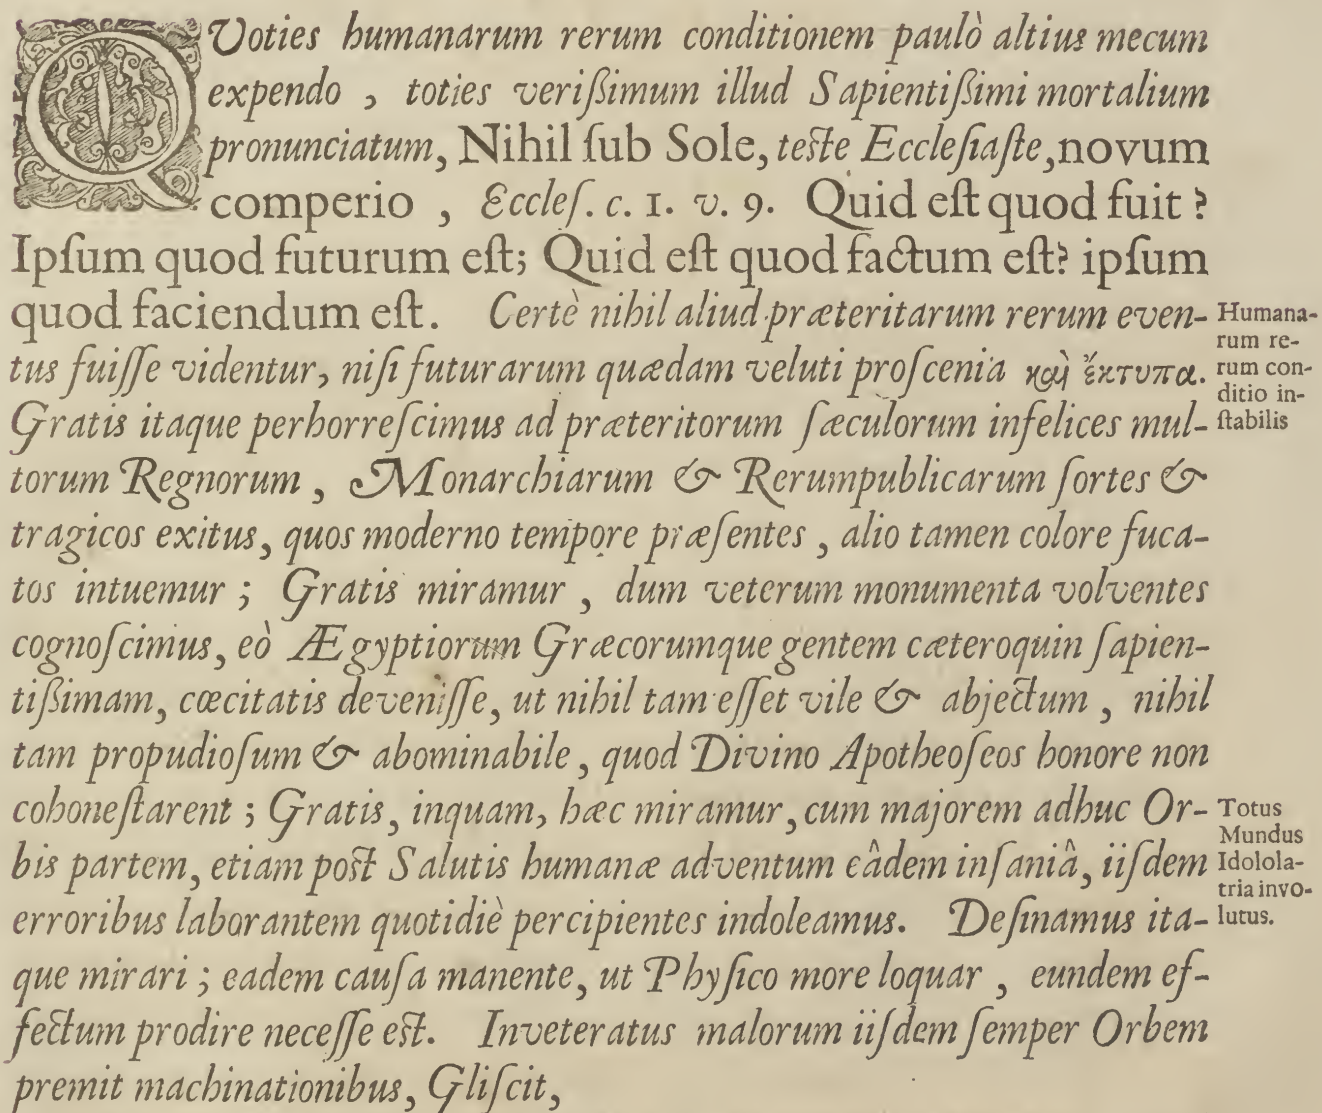 QVoties humanarum rerum conditionem paulò altius mecum
expendo , toties verißimum illud Sapientißimi mortalium
pronunciatum, Nihil ſub Sole, teſte Eccleſiaſte, novum
comperio , Eccleſ. c. 1. v. 9. Quid eſt quod fuit ?
Ipſum quod futurum eſt; Quid eſt quod factum eſt? ipſum
quod faciendum eſt. Certè nihil aliud præteritarum rerum even-
tus fuiſſe videntur, niſi futurarum quædam veluti proſcenia καὶ ἔκτυπα.
Gratis itaque perhorreſcimus ad præteritorum ſæculorum infelices mul-
torum Regnorum , Monarchiarum & Rerumpublicarum ſortes &
tragicos exitus, quos moderno tempore præſentes , alio tamen colore fuca-
tos intuemur ; Gratis miramur , dum veterum monumenta volventes
cognoſcimus, eò Ægyptiorum Græcorumque gentem cæteroquin ſapien-
tißimam, cœcitatis deveniſſe, ut nihil tam eſſet vile & abjectum , nihil
tam propudioſum & abominabile, quod Divino Apotheoſeos honore non
cohoneſtarent ; Gratis, inquam, hæc miramur, cum majorem adhuc Or-
bis partem, etiam poſt Salutis humanæ adventum eâdem inſaniâ, iiſdem
erroribus laborantem quotidiè percipientes indoleamus. Deſinamus ita-
que mirari ; eadem cauſa manente, ut Phyſico more loquar , eundem ef-
fectum prodire neceſſe eſt. Inveteratus malorum iiſdem ſemper Orbem
premit machinationibus, Gliſcit,
Humana-
rum re-
rum con-
ditio in-
ſtabilis
Totus
Mundus
Idolola-
tria invo-
lutus.